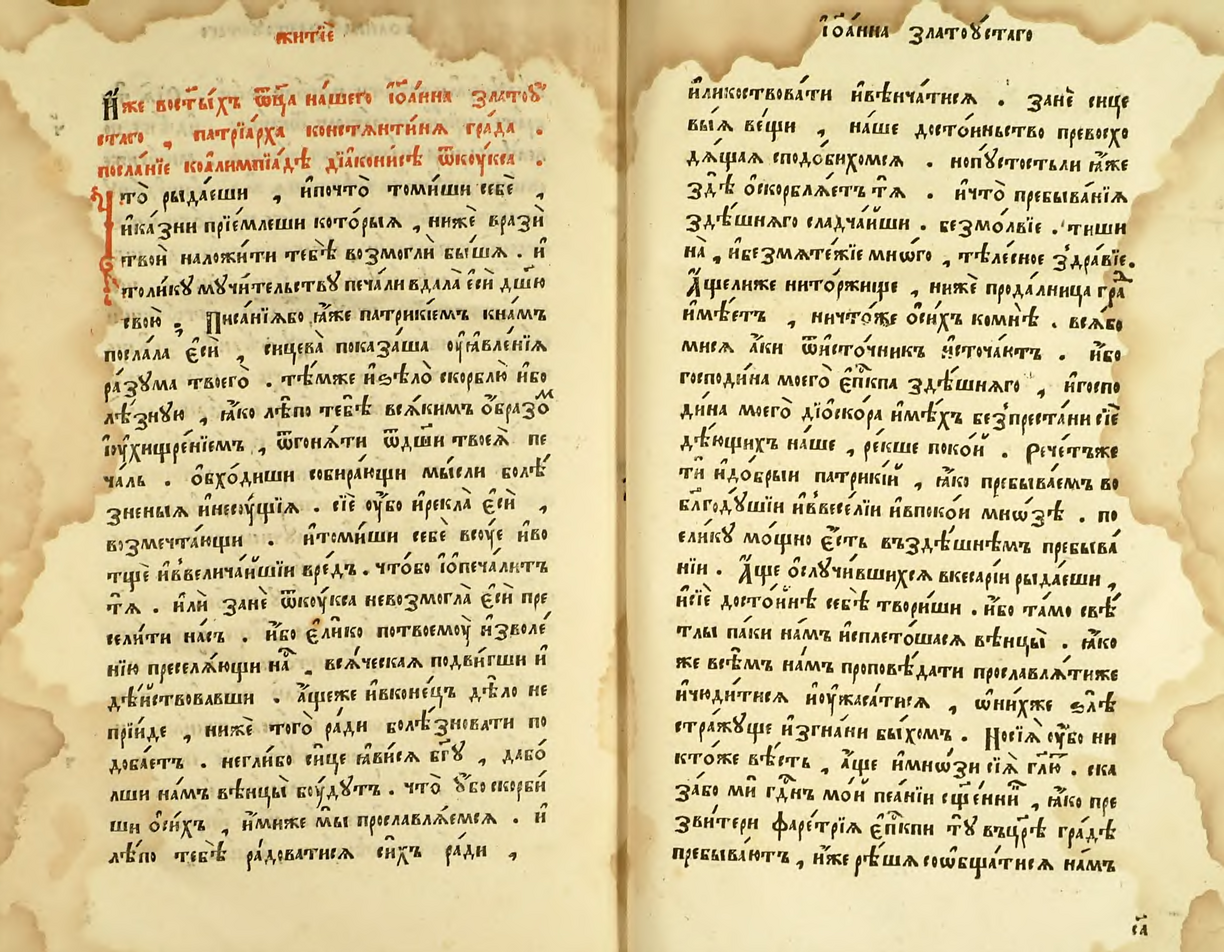 житїѐ
И҆́же востⷭ҇ы́хъ ѿц҃а на́шего і҆ѡа́нна златоꙋ́
стаго , патрїа́рха констѧнти́нѧ гра́да .
посла́нїе коа҆лимпїа́дѣ дїа́конисѣ ѿкоу́кса .
Что̀ рыда́еши , и҆почто̀ томи́ши себѐ ,
и҆ка́зни прїе́млеши кото́рыѧ , нижѐ вразѝ
твоѝ наложи́ти тебѣ̀ возмоглѝ бы́шѧ . и҆
толикꙋ̀ мꙋчи́тельствꙋ печа́ли вдала̀ є҆сѝ дш҃ꙋ
свою̀ , Писа́нїѧбо ꙗ҆́же патрики́емъ кна́мъ
посла́ла є҆сѝ , сицева̀ показа́ша оу҆ꙗвле́нїѧ
ра́зꙋма твоего̀ . тѣ́мже и҆ѕѣлѡ̀ скорблю̀ и҆бо
лѣ́знꙋю , ꙗ҆́ко лѣ́по тебѣ̀ всѧ́кимъ о҆́бразоⷨ
і҆оу҆хищре́нїемъ , ѿгонѧ́ти ѿдш҃и твоеѧ̀ пе
ча́ль . о҆бхо́диши собира́ющи мы́сли болѣ́
зненыѧ и҆несоу́щїѧ . сїѐ оу҆́бо и҆рекла̀ є҆сѝ ,
возмечта́ющи . и҆томи́ши себѐ всоу́е и҆во
тщѐ и҆ввелича́йшїи вре́дъ . что́бо і҆ѡпеча́литъ
тѧ̀ . и҆лѝ занѐ ѿкоу́кса невозмогла̀ є҆сѝ пре
сели́ти на́съ . и҆́бо є҆ли́ко потвоемоу̀ и҆зволе́
нїю преселѧ́ющи наⷭ҇ , всѧ́ческаѧ подви́гши и҆
дѣ́йствовавши . а҆́щеже и҆вконе́цъ дѣ́ло не
прїи́де , нижѐ того̀ ра́ди болѣ́зновати по
доба́етъ . негли́бо си́це ꙗ҆ви́сѧ бг҃ꙋ , дабо́
лши на́мъ вѣнцы̀ боу́дꙋтъ . что̀ ᲂу҆бо скорби́
ши ѡ҆си́хъ , и҆́миже мы̀ прославлѧ́емсѧ . и҆
лѣ́по тебѣ̀ ра́доватисѧ си́хъ ра́ди ,
і҆ѡа́нна златоꙋ́стаго
и҆ликоствова́ти и҆вѣнча́тисѧ . занѐ сице
вы́ѧ ве́щи , на́ше досто́иньство превосхо
дѧ́щаѧ сподо́бихомсѧ . нопꙋстостьли ꙗ҆́же
здѣ̀ ѡ҆скорблѧ́етъ тѧ̀ . и҆что̀ пребыва́нїѧ
здѣ́шнѧго сладча́йши . безмо́лвїе . тиши
на̀ , и҆безмѧте́жїе мно́го , тѣле́сное здра́вїе .
А҆́щелиже нито́ржище , нижѐ прода́лница гра
и҆мѣ́етъ , ничто́же ѡ҆си́хъ комнѣ̀ . всѧ́бо
мисѧ а҆́ки ѿи҆сто́чникъ и҆сточа́ютъ . и҆́бо
господи́на моего̀ є҆пⷭ҇кпа здѣ́шнѧго , и҆госпо
ди́на моего̀ дїо́скора и҆мѣ́хъ безпреста́ни сїѐ
дѣ́ющихъ на́ше , ре́кше поко́й . Рече́тъже
ти и҆до́брыи патрики́й , ꙗ҆́ко пребыва́емъ во
блг҃одꙋ́шїи и҆ввесе́лїи и҆впоко́и мно́зѣ . по
елику̀ мо́щно є҆́сть въздѣ́шнѣмъ пребыва́
нїи . А҆́ще ѡ҆слꙋчи́вшихсѧ вкеса́рїи рыда́еши ,
и҆сїѐ досто́йнѣ себѣ̀ твори́ши . и҆́бо та́мо свѣ́
тлы па́ки на́мъ и҆сплето́шасѧ вѣнцы̀ . ꙗ҆́ко
же всѣ́мъ на́мъ проповѣ́дати прославлѧ́тиже
и҆чюди́тисѧ и҆оу҆жаса́тисѧ , ѡ҆ни́хже ѕлѣ̀
стра́жꙋще и҆згна́ни бы́хомъ . Носїѧ̀ оу҆́бо ни
кто́же вѣ́сть , а҆́ще и҆мно́зи сїѧ̀ гл҃ю́ . ска
за́бо мѝ гдⷭ҇нъ мо́й пеа́нїи сщ҃е́нниⷦ҇ , ꙗ҆́ко пре
зви́тери фаре́трїѧ є҆пⷭ҇кпи тꙋ̀ въцр҃ѣ гра́дѣ
пребыва́ютъ , и҆́же рѣ́шѧ соѡбща́тисѧ на́мъ